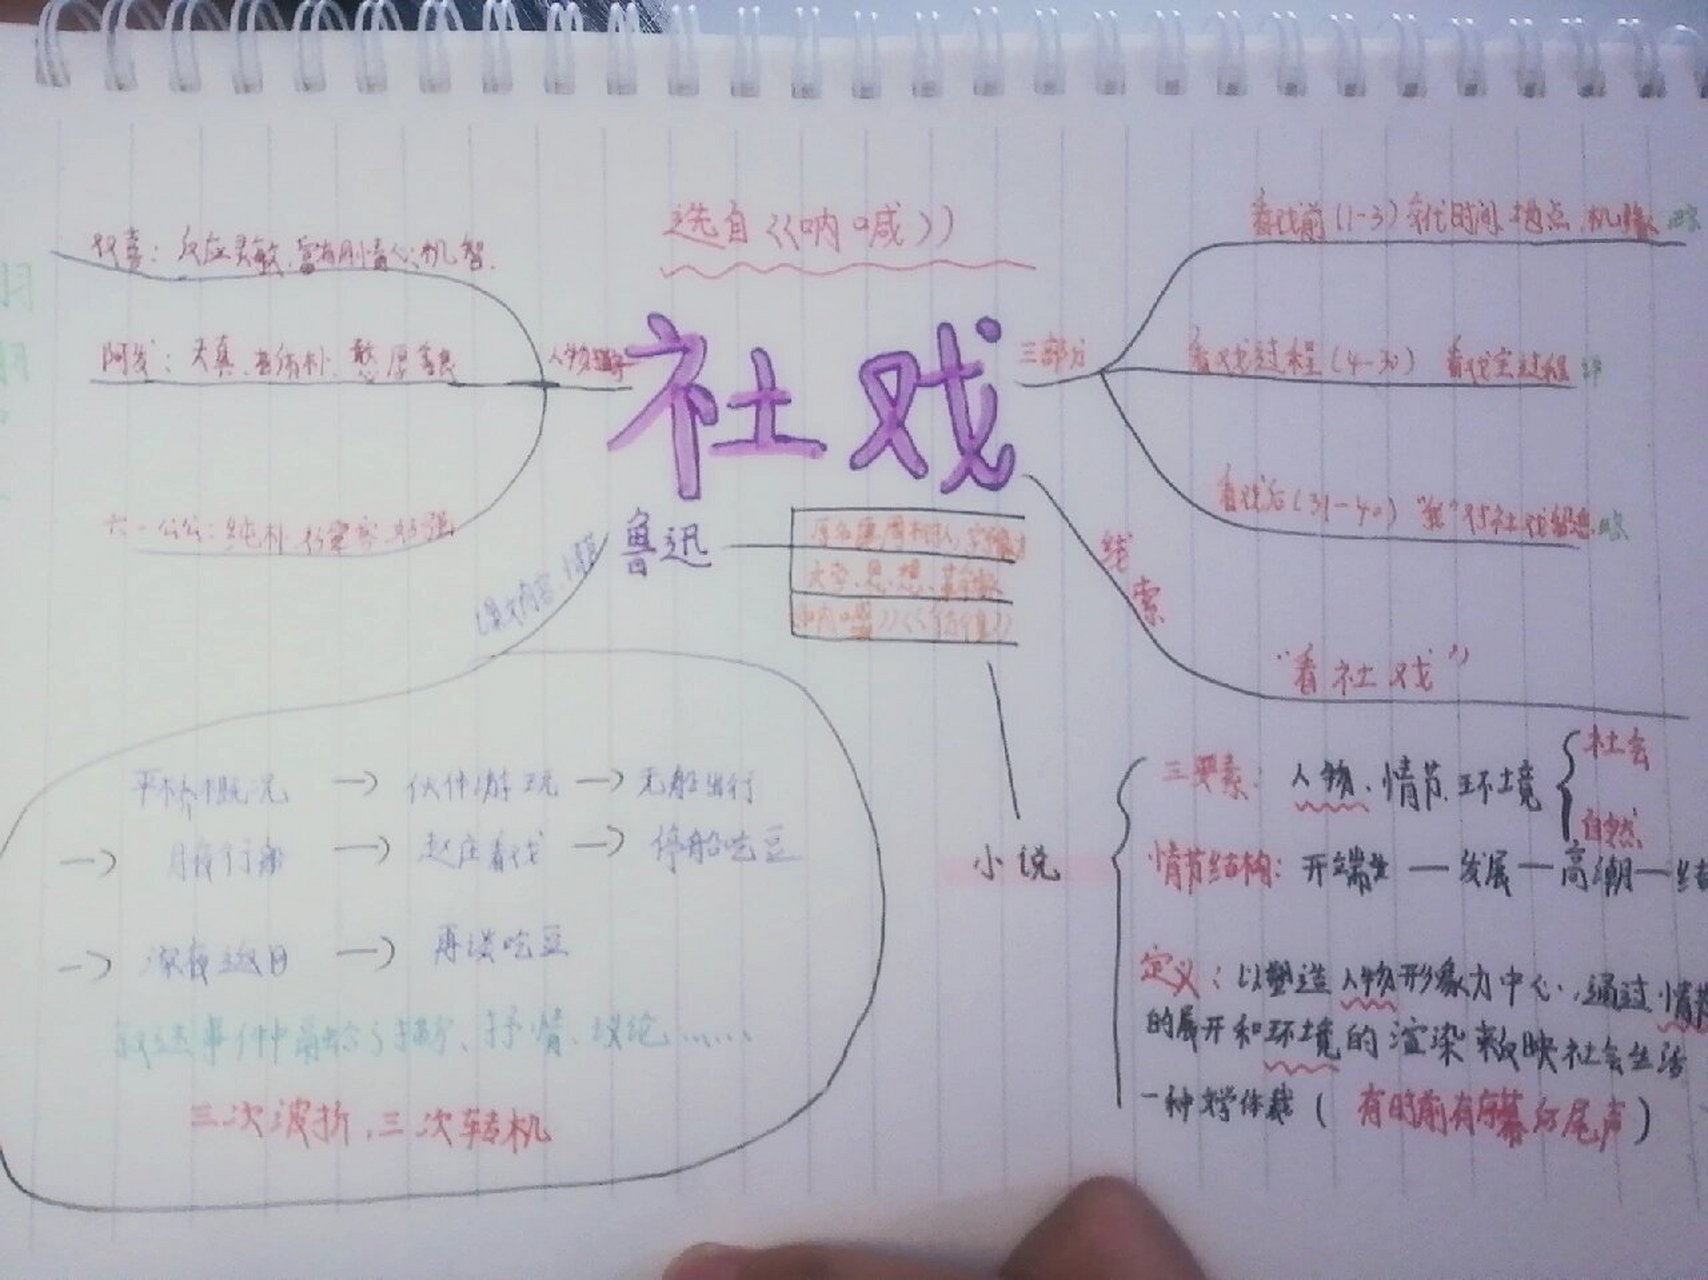 选自《呐喊》
社戏
鲁迅
双喜：反应灵敏、富有同情心、机智.
阿发：天真、淳朴、憨厚善良
六一公公：纯朴、好客
人物
三部分
看戏前(1-3)交代时间、地点、
看戏过程(4-30) 看戏全过程 详
看戏后(31-40)"我"对社戏留恋. 略
线索
"看社戏"
文学、思想、革命家
《呐喊》《彷徨》
课文内容、情节
平桥概况 → 伙伴游玩 → 无船出行
→ 月夜行船 → 赵庄看戏 → 停船吃豆
→ 深夜返回 → 再谈吃豆
叙述事件中融合了描写、抒情、议论......
三次波折、三次转机
小说
三要素：人物、情节、环境
社会
自然
情节结构：开端 — 发展 — 高潮 — 结
定义：以塑造人物形象为中心，通过情节
的展开和环境的渲染来反映社会生活
一种文学体裁（有时前有序幕后尾声）